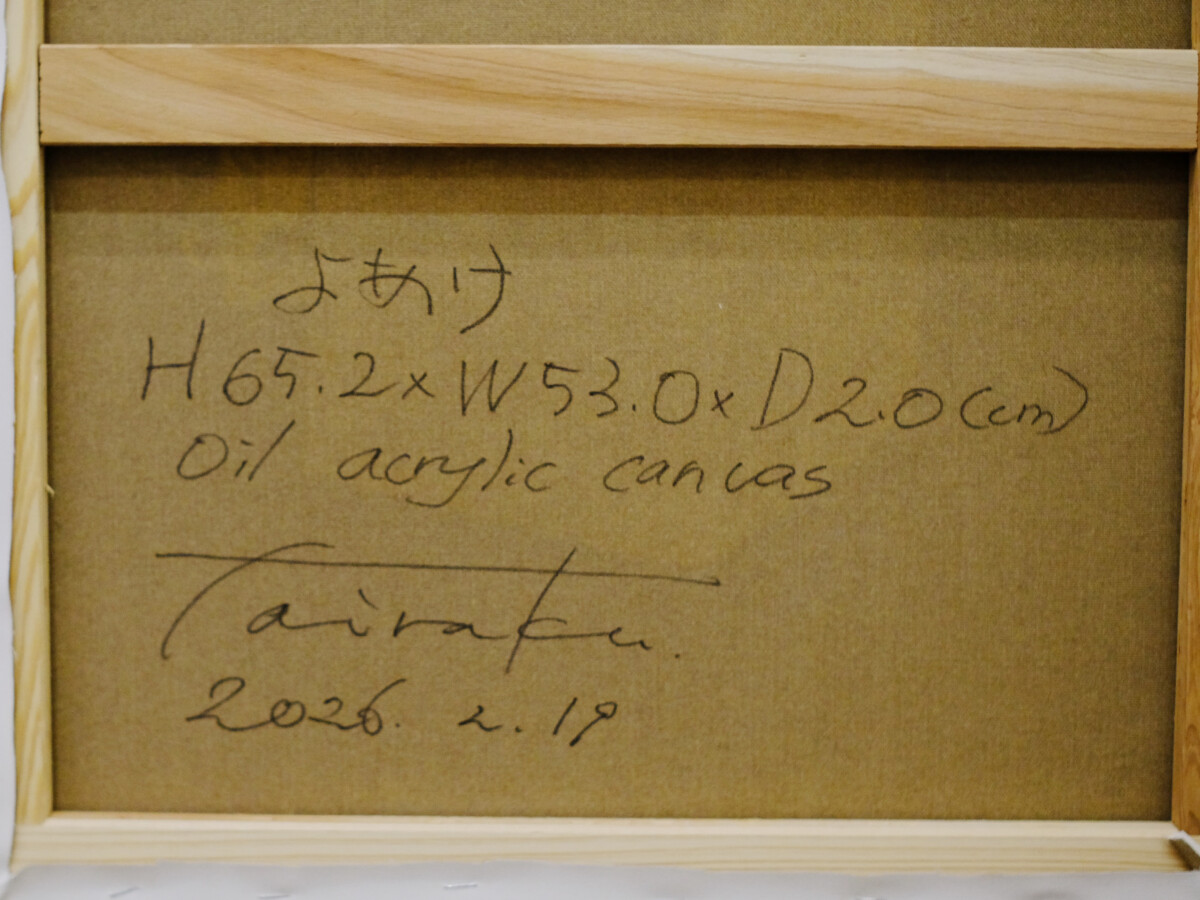 よあけ
H65.2×W53.0×D2.0(cm)
Oil acrylic canvas
Tairaku.
2026. 2. 19